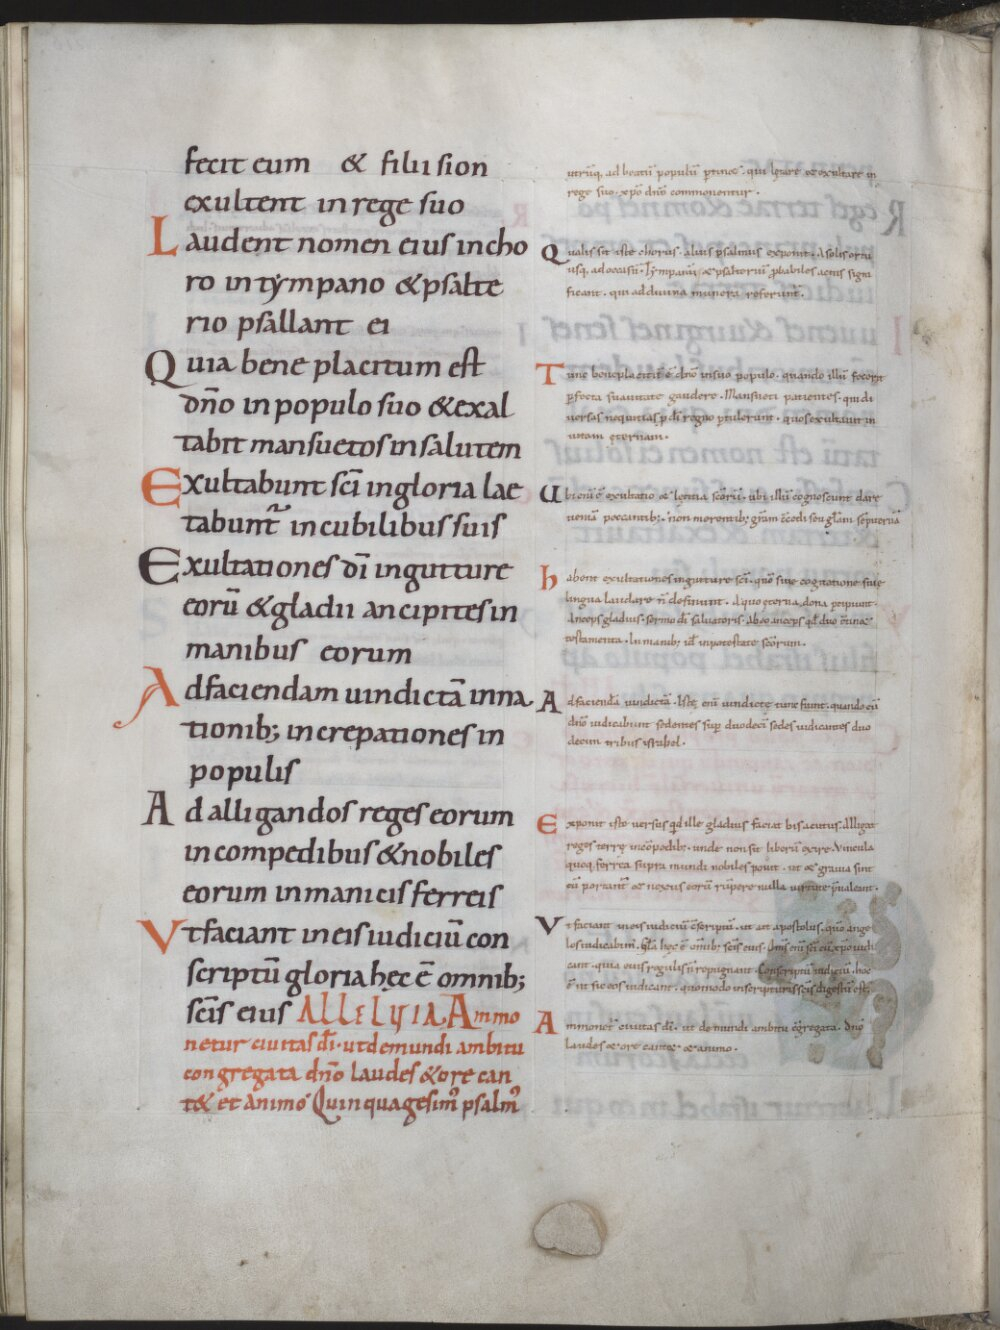 fecit eum & filii sion
exultent in rege suo
Laudent nomen eius incho
ro in tÿmpano &psalte
rio psallant ei
Quia bene placitum est
dño in populo suo &exal
tabit mansuetos insalutem
Exultabunt scī ingloria lae
tabunt̄ incubilibus suis
Exultationes dī ingutture
eorū &gladii ancipites in
manibus eorum
Adfaciendam uindictā inna
tionib; increpationes in
populis
Ad alligandos reges eorum
in compedibus &nobiles
eorum inmanicis ferreis
Vtfaciant ineis iudiciū con
scriptū gloria hęc ē omnib;
scīs eius ALLELVIA Ammo
netur ciuitas dī· utdemundi ambitu
congregata dño laudes &ore can
t& et animo Quinquagesim psalm
utrūq, ad beatū populū ptinet· qui lętare & exultare in
rege suo xpo dño commonentur·
Qualis sit iste chorus· alius psalmus exponit· Asolis ortu
usq, adoccasū· Tympanū & psalteriū pbabiles actus signi
ficant· qui addiuina munera referunt·
Tunc beneplacitū ē dño insuo populo· quando illū fecerit
pfecta suauitate gaudere· Mansueti patientes· qui di
uersas nequitias p dī regno ptulerunt· quos exultauit in
uitam ęternam·
Vbi erit exultatio & lętitia scōrū· ubi illū cognoscunt dare
ueniā peccantib;
habent exultationes ingutture scī· quō siue cogitatione siue
lingua laudare ñ definiunt· A quo ęterna dona pcipiunt·
Anceps gladius· sermo dī saluatoris· Ab eo anceps qd duo
testamenta· In manib; id inpotestate scōrum·
Adfaciendā uindictā· Istę enī uindictę tunc fiunt· quando cū
dño iudicabunt sedentes sup duodecī sedes iudicantes duo
decim tribus israhel·
Exponit iste uersus qd ille gladius faciat bis acutus· Alligat
reges terrę incōpedib; unde non sit liberū exire· Vincula
quoq, ferrea supra mundi nobiles ponit· ut & grauia sint
cū portant̄ & nexus eorū rūpere nulla uirtute pualeant·
Vt faciant in eis iudiciū cōscriptū· ut ait apostolus· quō ange
los iudicabim· Gła hęc ē omib; scīs eius·
cant· quia eius regulis ñ repugnant· Conscriptū iudiciū· hoc
ē ut sic eos iudicant· quomodo inscripturis scīs digestū est;
Ammonet ciuitas dī· ut de mundi ambitu cōgregata· dño
laudes & ore cantet & animo·